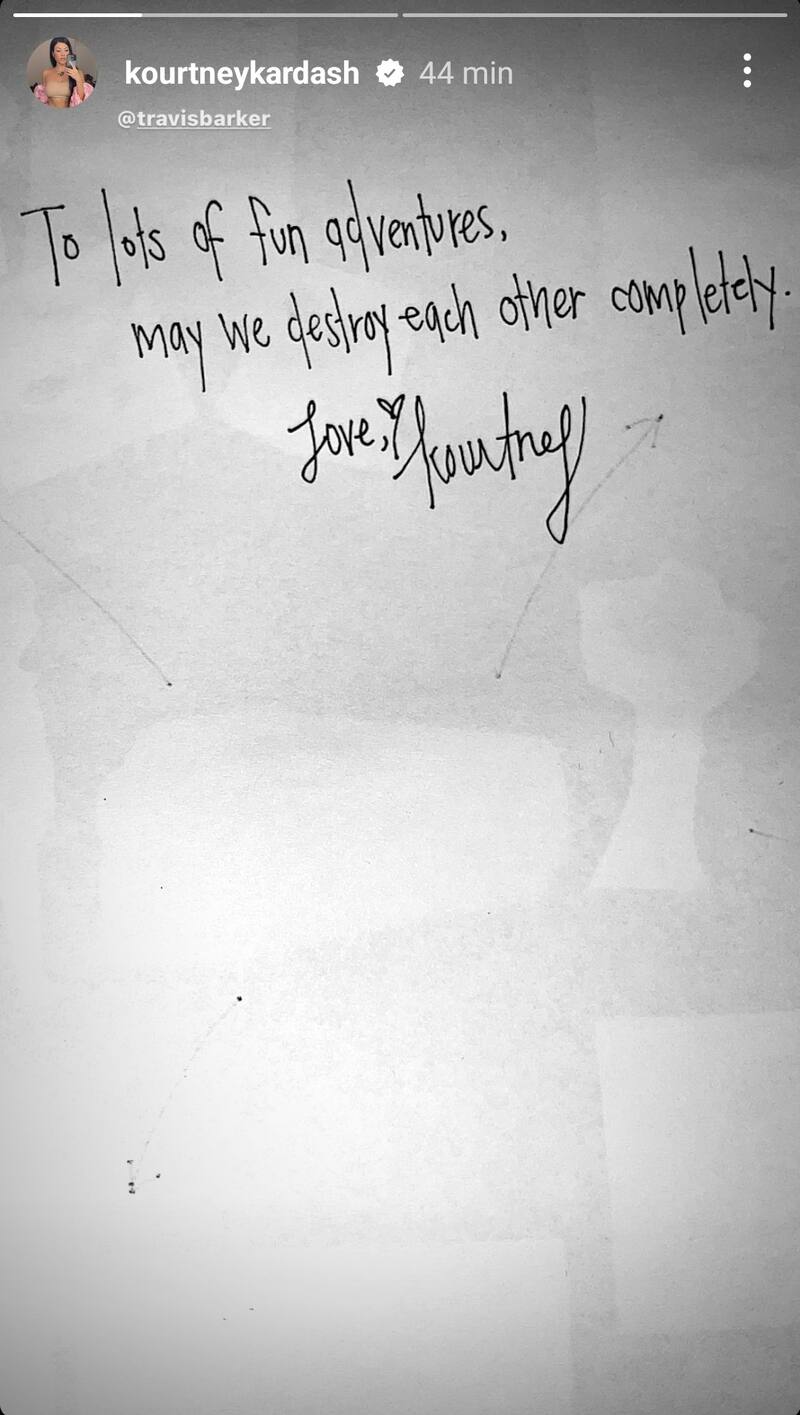 kourtneykardash 44 min
@travisbarker
To lots of fun adventures,
may we destroy each other completely.
Love, kourtney